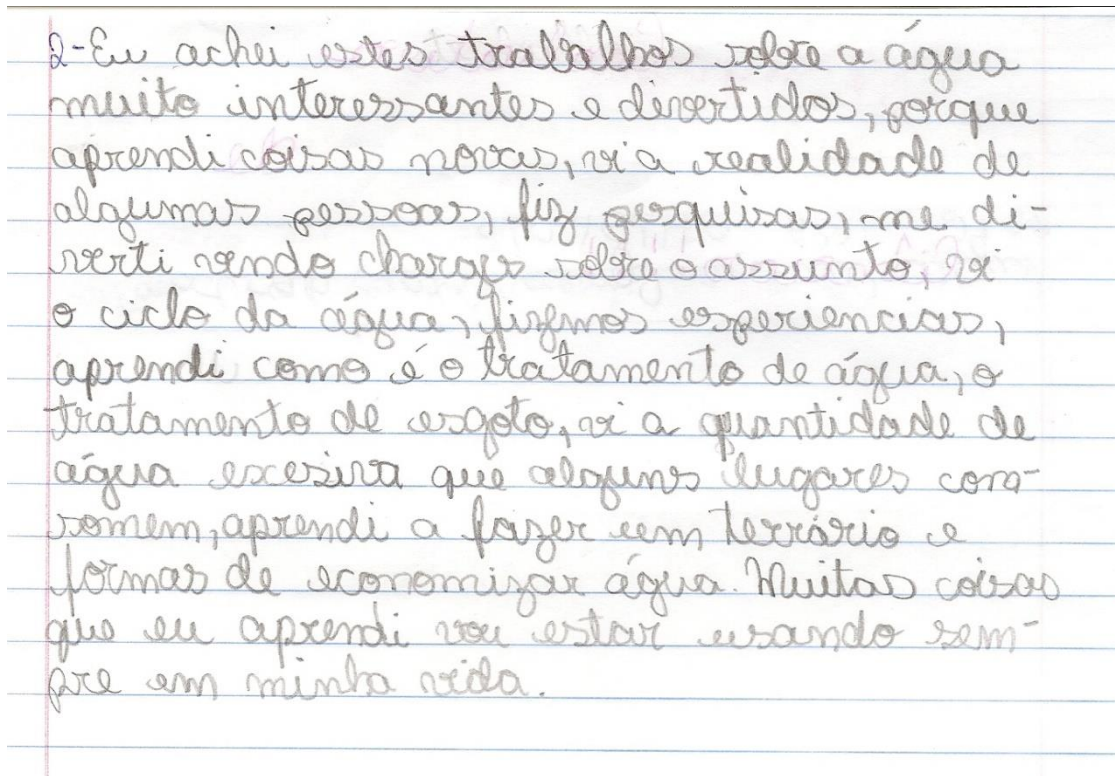 2-Eu achei estes trabalhos sobre a água
muito interessantes e divertidos, porque
aprendi coisas novas, vi a realidade de
algumas pessoas, fiz pesquisas, me di-
verti vendo charges sobre o assunto, vi
o ciclo da água, fizemos experiencias,
aprendi como é o tratamento de água, o
tratamento de esgoto, vi a quantidade de
água excesiva que alguns lugares con-
somem, aprendi a fazer um terrário e
formas de economizar água. Muitas coisas
que eu aprendi vou estar usando sem-
pre em minha vida.